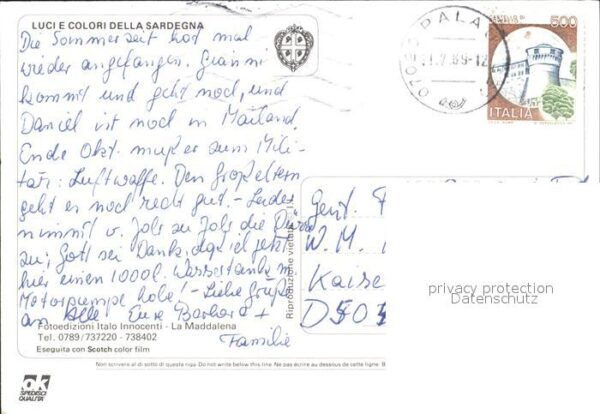 LUCI E COLORI DELLA SARDEGNA
Die Sommerzeit hat mal
wieder angefangen. Gianni
kommt und geht noch, und
Daniel ist noch in Mailand.
Ende Okt. muß er zum Mili-
tär: Luftwaffe. Den Großeltern
geht es noch recht gut. - Leider
nimmt v. Jahr zu Jahr die Dürre
zu; Gott sei Dank, daß ich jetzt
hier einen 1000 l. Wassertank m.
Motorpumpe habe! - Liebe Grüße
an Alle Eure Barbara +
Familie
Fotoedizioni Italo Innocenti - La Maddalena
Tel. 0789/737220 - 738402
Eseguita con Scotch color film
ok
SPEDISCI
QUALITÀ
Non scrivere al di sotto di questa riga Do not write below this line Ne pas écrire au dessous de cette ligne B
Riproduzione vietata
07020 PALAU
89-12
500
ITALIA
Gent. F
W. M.
Kaise
D 503
privacy protection
Datenschutz